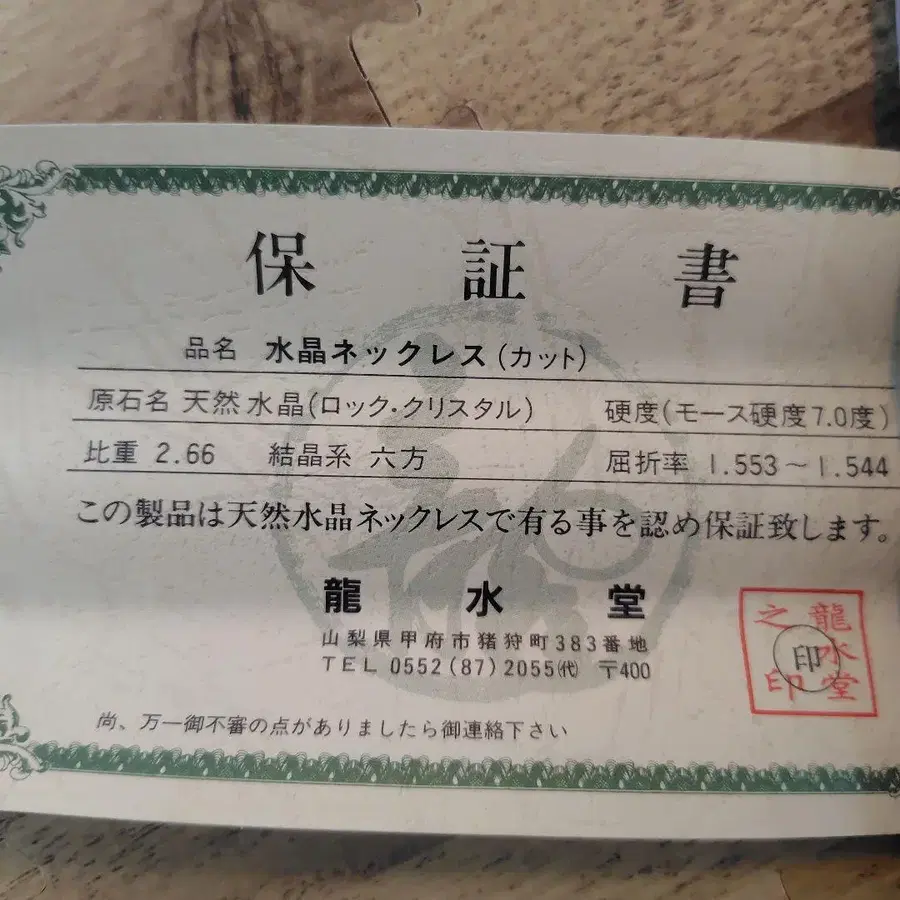 保証書
品名 水晶ネックレス(カット)
原石名 天然水晶(ロック・クリスタル) 硬度(モース硬度7.0度)
比重 2.66 結晶系 六方 屈折率 1.553～1.544
この製品は天然水晶ネックレスで有る事を認め保証致します。
龍水堂
山梨県甲府市猪狩町383番地
TEL 0552(87)2055㈹ 〒400
龍水堂之印
印
尚、万一御不審の点がありましたら御連絡下さい